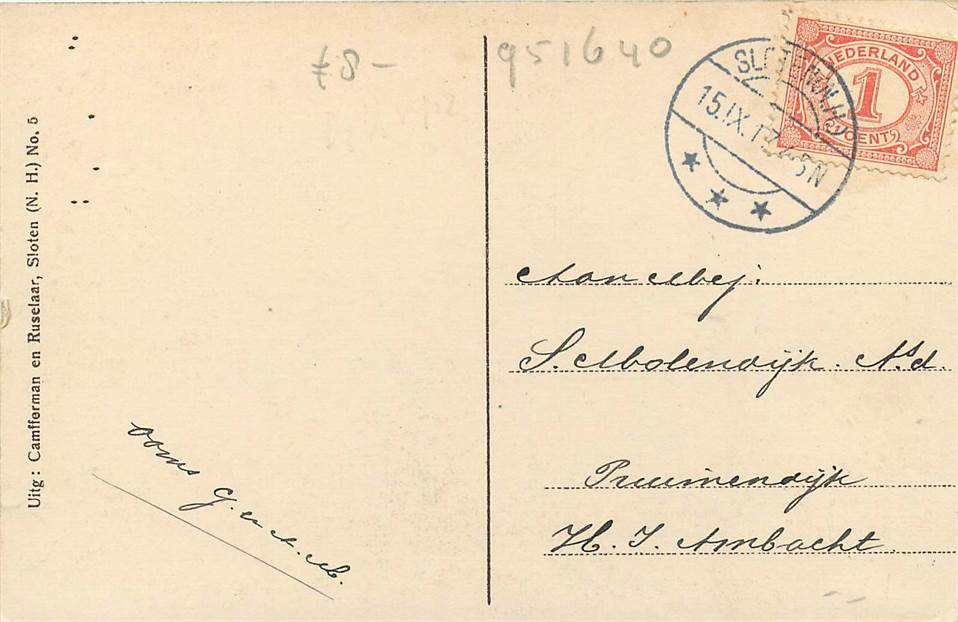 £8-
951640
NEDERLAND
1
CENT
SLOTEN (N.H.)
15.IX.17.4-5N
Uitg: Camfferman en Ruselaar, Sloten (N. H.) No. 5
Aan Mej:
S. Molendijk. Asd.
Pruimendijk
H. I. Ambacht.
ooms G. en A. M.